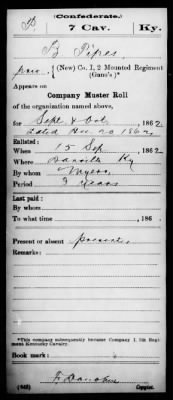 (Confederate.)
P 7 Cav. Ky.
B Pipes
(New) Co. I, 2 Mounted Regiment
(Gano's)*
Appears on
Company Muster Roll
of the organization named above,
for Sept & Oct, 1862.
dated Nov. 20 1862
Enlisted:
When 15 Sep, 1862
Where Danville Ky
By whom Myers
Period 3 years
Last paid:
By whom
To what time , 186 .
Present or absent present
Remarks:
*This company subsequently became Company I, 7th Regiment Kentucky Cavalry.
Book mark:
(642) Copyist.